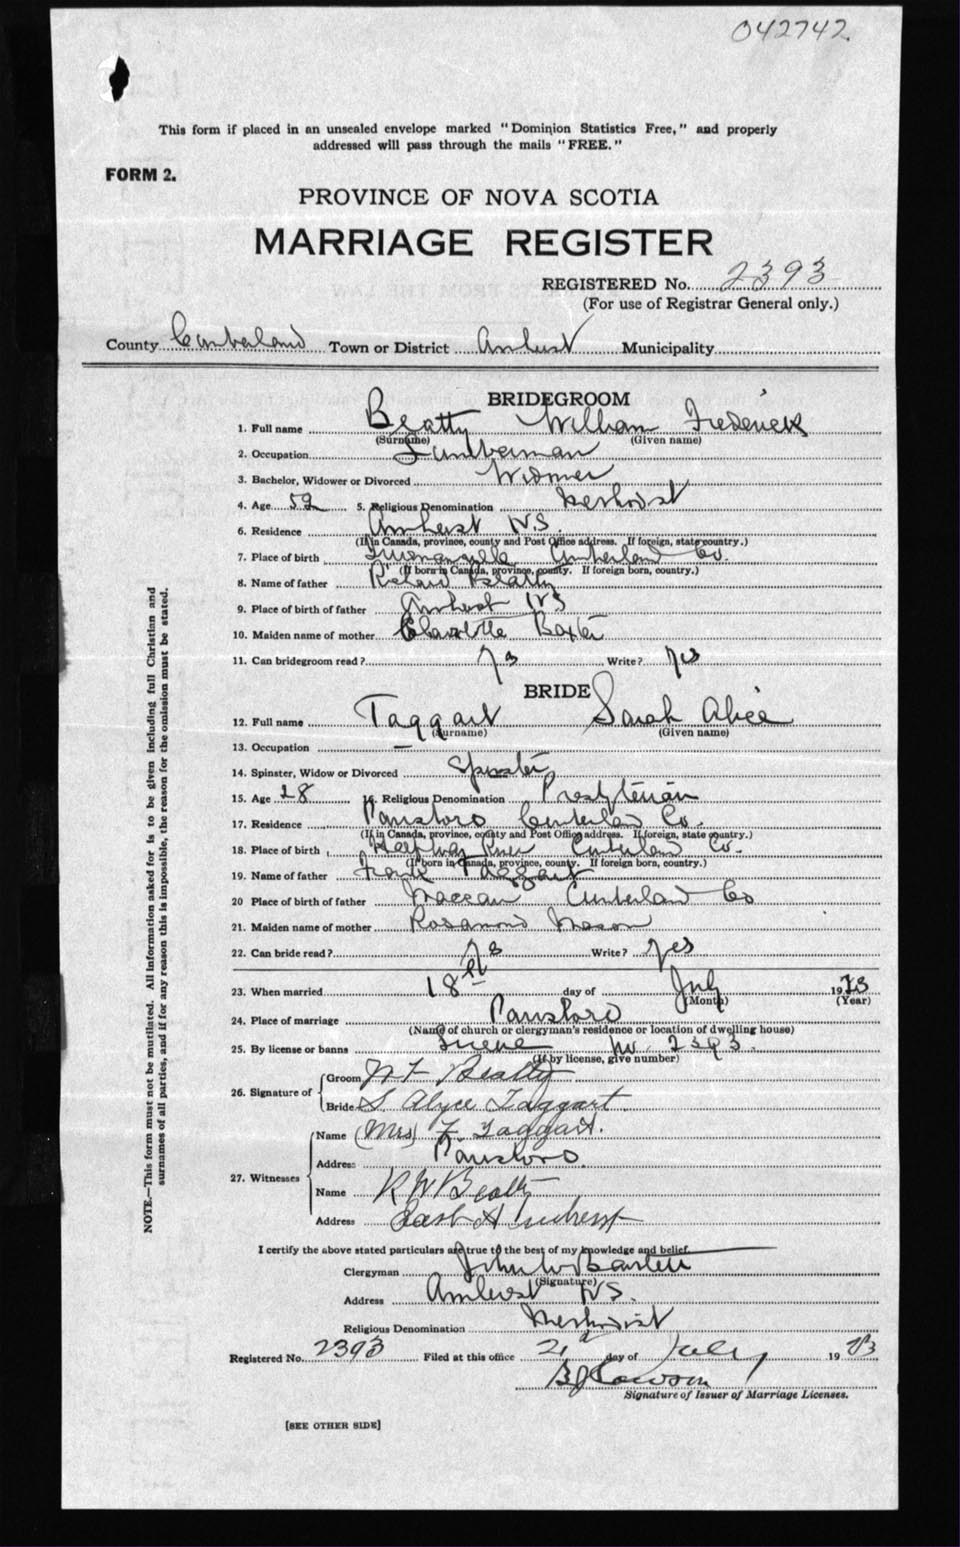 042742.
This form if placed in an unsealed envelope marked "Dominion Statistics Free," and properly
addressed will pass through the mails "FREE."
FORM 2.
PROVINCE OF NOVA SCOTIA
MARRIAGE REGISTER
REGISTERED No. 2393
(For use of Registrar General only.)
County Cumberland Town or District Amherst Municipality
BRIDEGROOM
1. Full name Beatty William Frederick
(Surname) (Given name)
2. Occupation Lumberman
3. Bachelor, Widower or Divorced Widower
4. Age 52 5. Religious Denomination Methodist
6. Residence Amherst N.S.
(If in Canada, province, county and Post Office address. If foreign, state country.)
7. Place of birth Cumberland Co.
(If born in Canada, province, county. If foreign born, country.)
8. Name of father Richard Beatty
9. Place of birth of father Amherst NS
10. Maiden name of mother Charlotte Baxter
11. Can bridegroom read? Yes Write? Yes
BRIDE
12. Full name Taggart Sarah Alice
(Surname) (Given name)
13. Occupation —
14. Spinster, Widow or Divorced Spinster
15. Age 28 16. Religious Denomination Presbyterian
17. Residence Parrsboro Cumberland Co.
(If in Canada, province, county and Post Office address. If foreign, state country.)
18. Place of birth Halfway River Cumberland Co.
(If born in Canada, province, county. If foreign born, country.)
19. Name of father Frank Taggart
20 Place of birth of father Maccan Cumberland Co
21. Maiden name of mother Rosamond Mason
22. Can bride read? Yes Write? Yes
23. When married 18th day of July 1923
(Month) (Year)
24. Place of marriage Parrsboro
(Name of church or clergyman's residence or location of dwelling house)
25. By license or banns License No. 2393.
(If by license, give number)
26. Signature of Groom W F Beatty
Bride S Alyce Taggart.
27. Witnesses Name (Mrs) F Taggart.
Address Parrsboro.
Name R W Beatty
Address East Amherst
I certify the above stated particulars are true to the best of my knowledge and belief.
Clergyman John W Bartlett
(Signature)
Address Amherst N.S.
Religious Denomination Methodist
Registered No. 2393 Filed at this office 21 day of July 1923
Signature of Issuer of Marriage Licenses.
[SEE OTHER SIDE]
NOTE.—This form must not be mutilated. All information asked for is to be given including full Christian and
surnames of all parties, and if for any reason this is impossible, the reason for the omission must be stated.